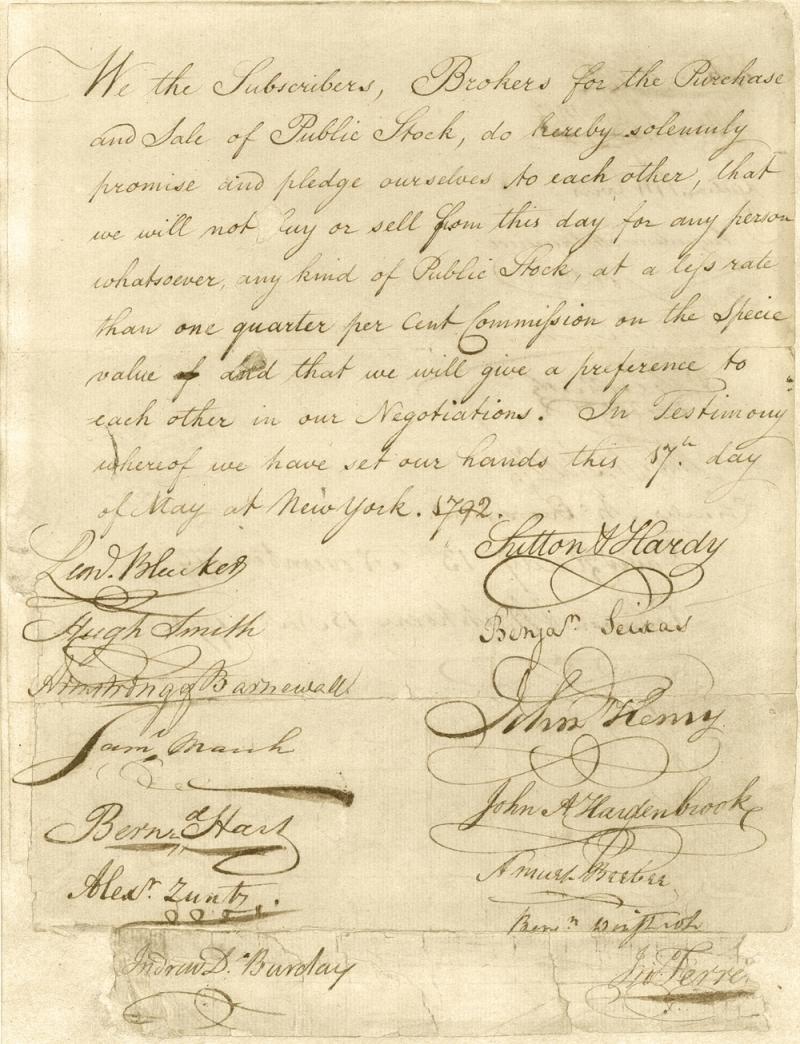 We the Subscribers, Brokers for the Purchase
and Sale of Public Stock, do hereby solemnly
promise and pledge ourselves to each other, that
we will not buy or sell from this day for any person
whatsoever, any kind of Public Stock, at a less rate
than one quarter per Cent Commission on the Specie
value of and that we will give a preference to
each other in our Negotiations. In Testimony
whereof we have set our hands this 17th. day
of May at New York. 1792.
Leond. Bleecker
Hugh Smith
Armstrong & Barnewall
Saml. March
Bernd. Hart
Alexr. Zuntz.
Andrew D. Barclay
Sutton & Hardy
Benjamn Seixas
John Henry
John A Hardenbrook
Amos Beebee
Benn
Jno Ferrers